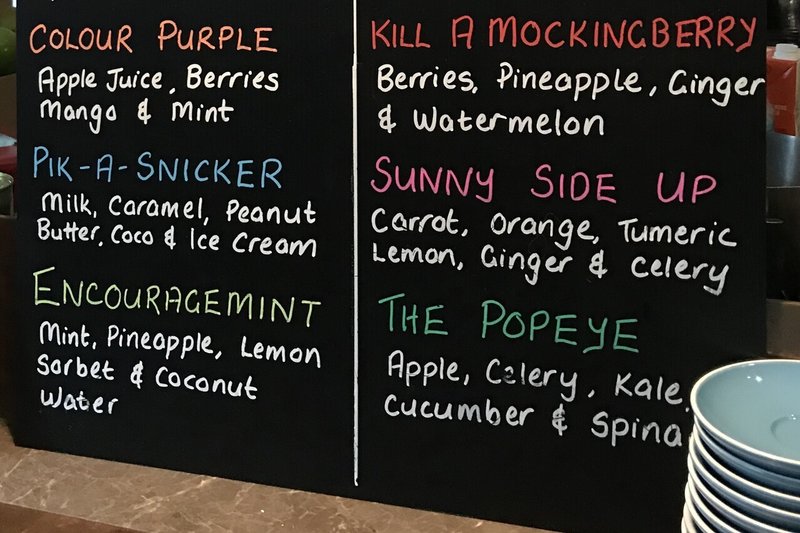 COLOUR PURPLE
Apple Juice, Berries
Mango & Mint
PIK-A-SNICKER
Milk, Caramel, Peanut
Butter, Coco & Ice Cream
ENCOURAGEMINT
Mint, Pineapple, Lemon
Sorbet & Coconut
Water
KILL A MOCKINGBERRY
Berries, Pineapple, Ginger
& Watermelon
SUNNY SIDE UP
Carrot, Orange, Tumeric
Lemon, Ginger & Celery
THE POPEYE
Apple, Celery, Kale,
Cucumber & Spina